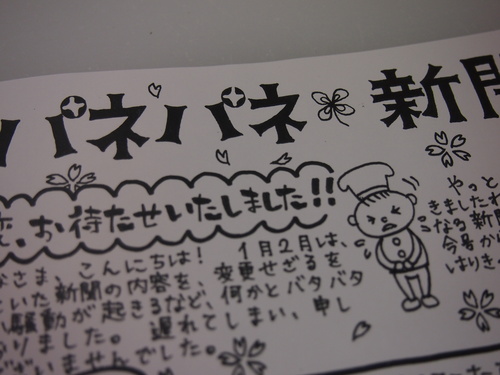 パネパネ新聞
変、お待たせいたしました!!
なさま、こんにちは! 1月2月は、
いた新聞の内容を、変更せざるを
騒動が起きるなど、何かとバタバタ
りました。 遅れてしまい、申し
ざいませんでした。
やっと
きました
なる新
今号が
はりき